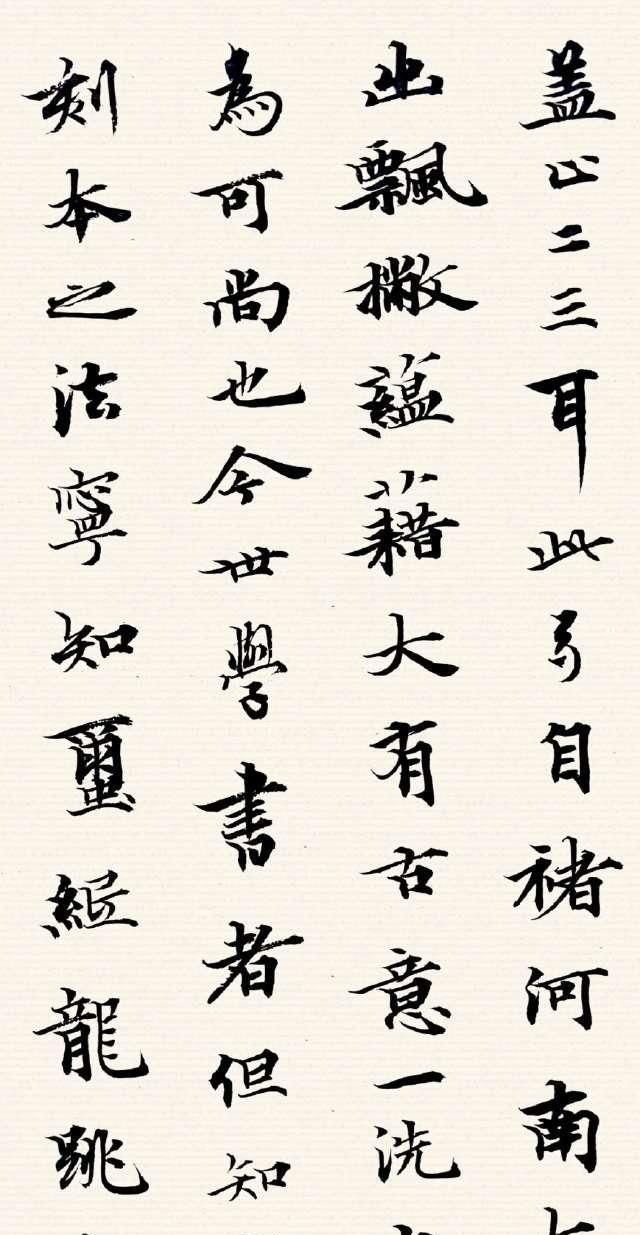 盖止二三耳此乃自褚河南
出飄撇蘊藉大有古意一洗
為可尚也今世學書者但知
刻本之法寧知璽紙龍跳